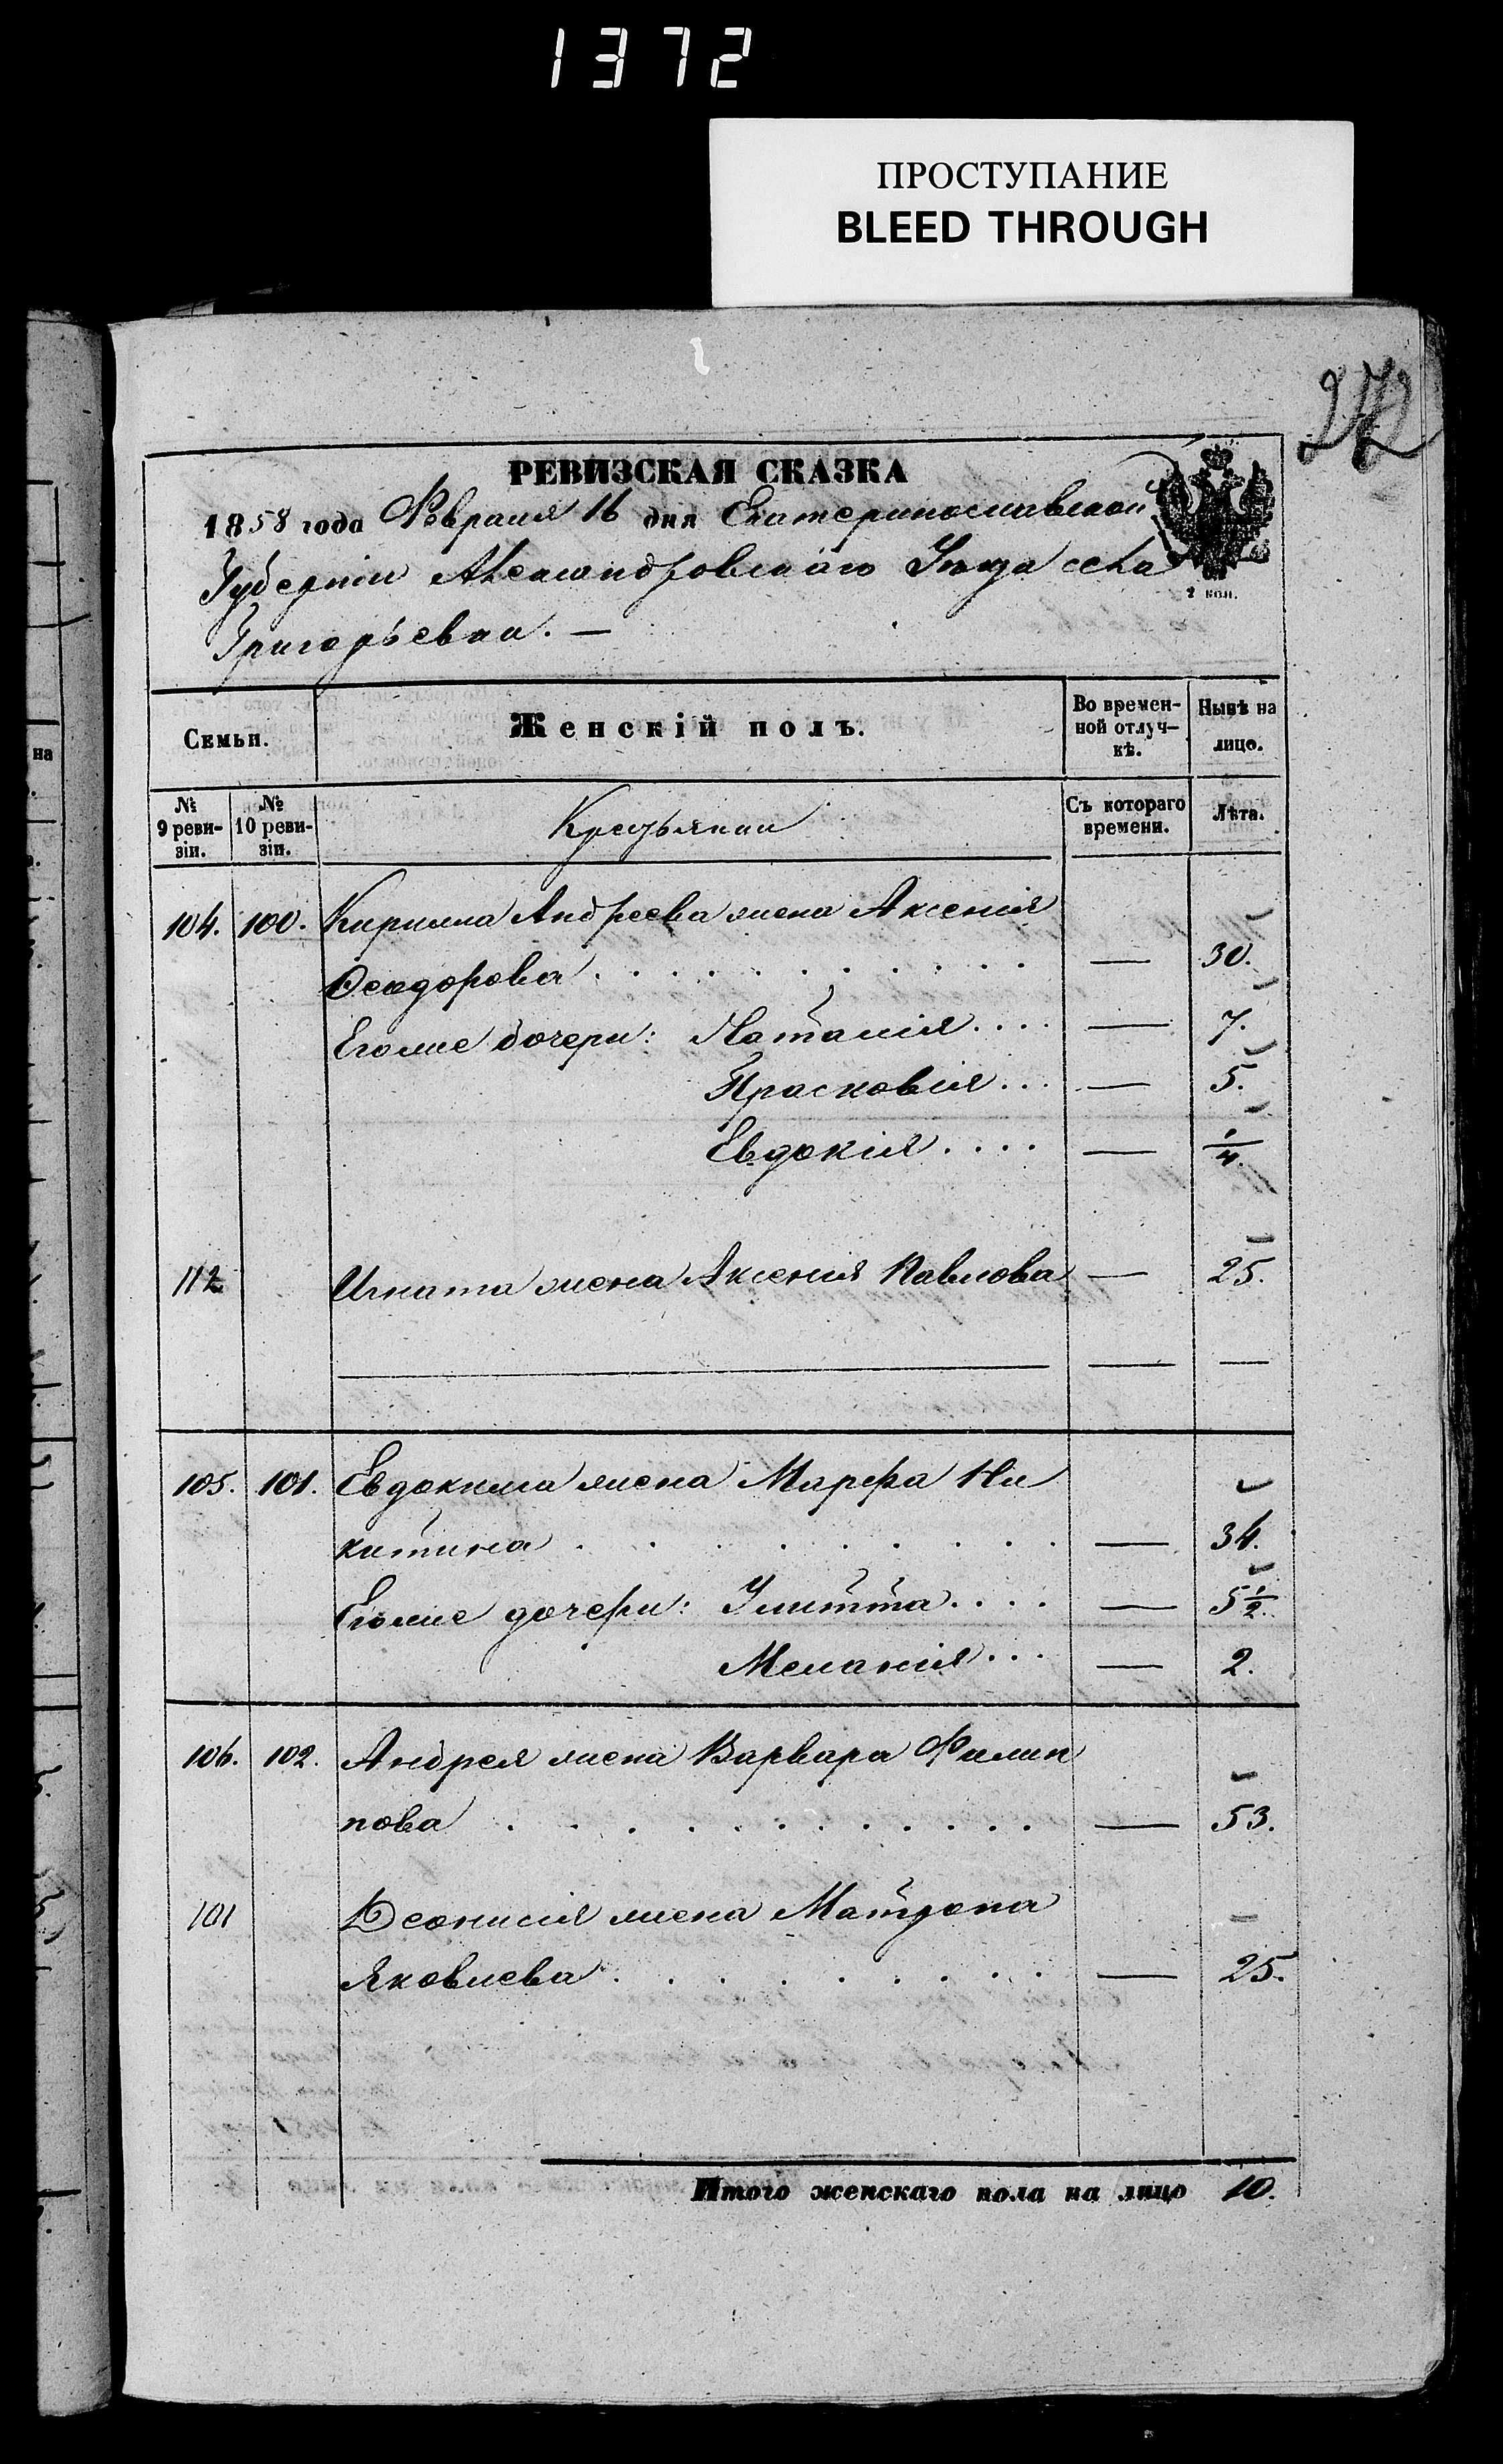 1372
ПРОСТУПАНИЕ
BLEED THROUGH
272
РЕВИЗСКАЯ СКАЗКА
1858 года Февраля 16 дня Екатеринославской
Губерніи Александровскаго Уѣзда села
Григорьевки. —
2 коп.
Семьи. Женскій полъ. Во временной отлучкѣ. Нынѣ на лицо.
№ 9 ревизіи. № 10 ревизіи. Крестьянки Съ котораго времени. Лѣта.
104. 100. Кирилла Андреева жена Аксенія
Феодорова . . . . — 30.
Его же дочери: Наталія . . . . — 7.
Прасковія . . . — 5.
Евдокія . . . . — 1/4.
112 Игната жена Аксенія Павлова — 25.
105. 101. Евдокима жена Марфа Ни
китина . . . . — 34.
Его же дочери: Улитта . . . . — 5 1/2.
Меланія . . . — 2.
106. 102. Андрея жена Варвара Филип
пова . . . . — 53.
101 Деонисія жена Матрона
Яковлева . . . . — 25.
Итого женскаго пола на лицо 10.
на